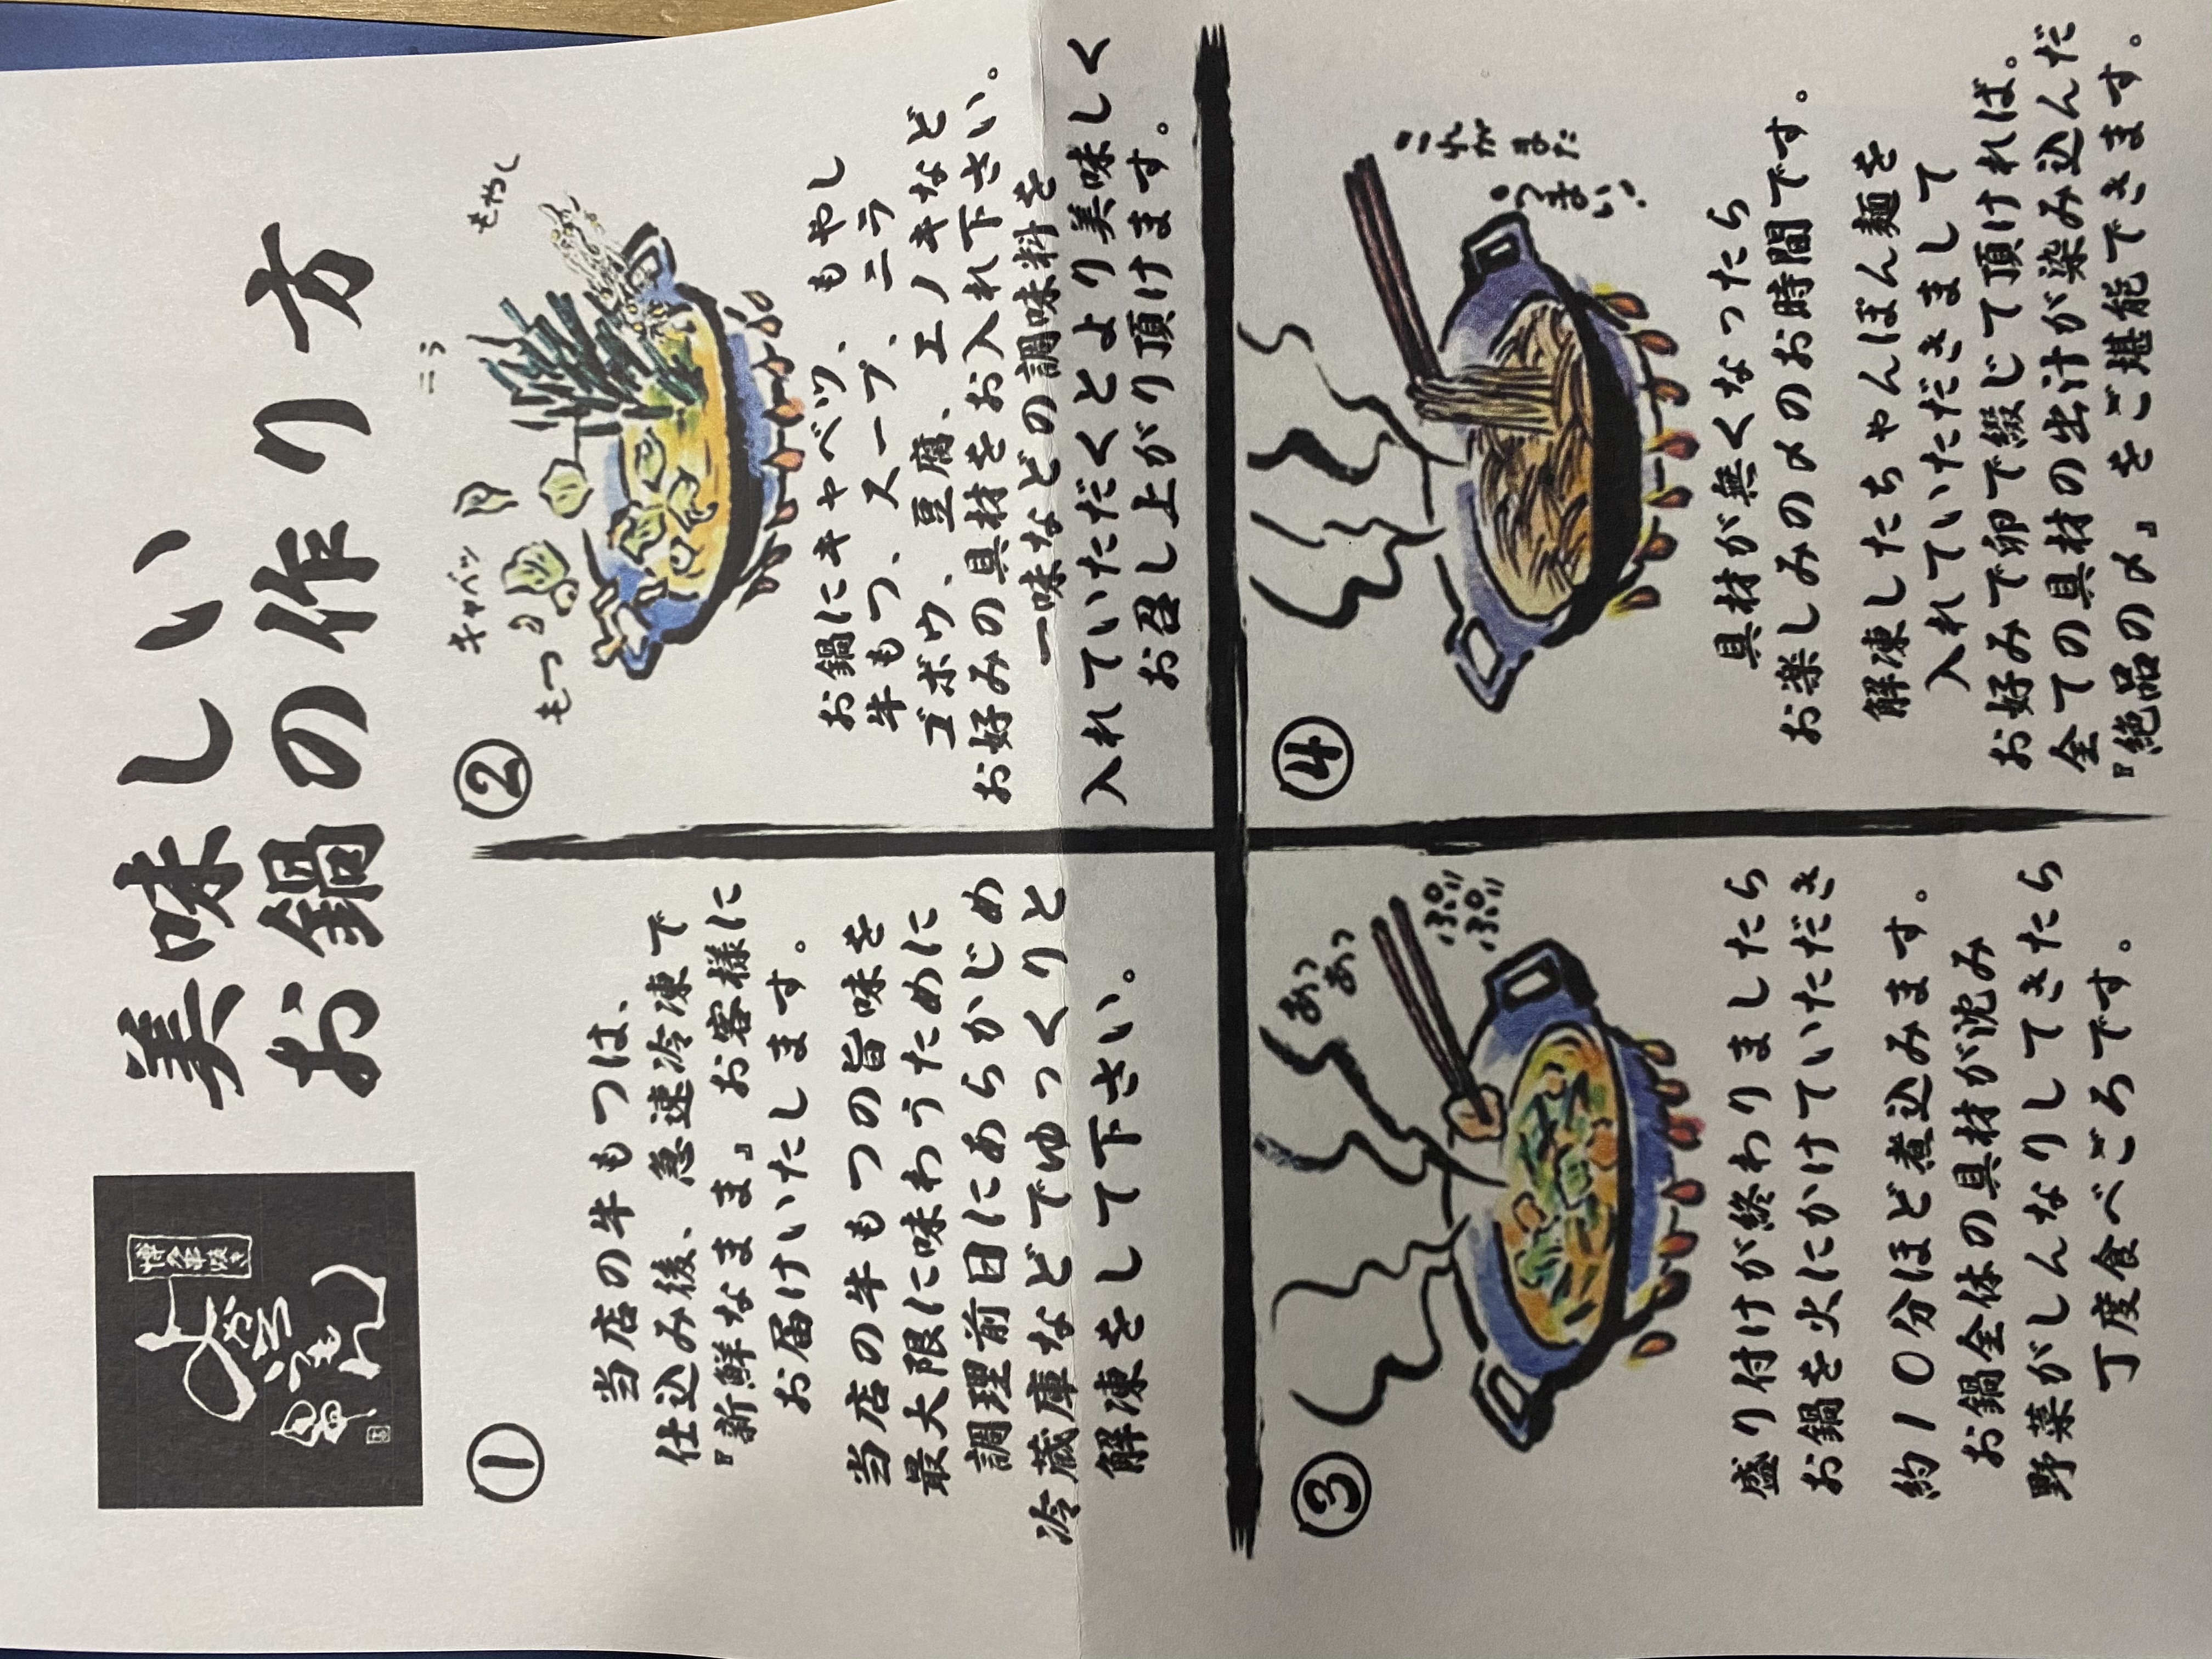 美味しい
お鍋の作り方
①
当店の牛もつは、
仕込み後、急速冷凍で
『新鮮なまま』お客様に
お届けいたします。
当店の牛もつの旨味を
最大限に味わうために
調理前日にあらかじめ
冷蔵庫などでゆっくりと
解凍をして下さい。
②
キャベツ
ニラ
もやし
もつ
お鍋にキャベツ、もやし
牛もつ、スープ、ニラ
ゴボウ、豆腐、エノキなど
お好みの具材をお入れ下さい。
一味などの調味料を
入れていただくとより美味しく
お召し上がり頂けます。
③
あっ
あっ
ぷりり
ぷりり
盛り付けが終わりましたら
お鍋を火にかけていただき
約10分ほど煮込みます。
お鍋全体の具材が沈み
野菜がしんなりしてきたら
丁度食べごろです。
④
これがまた
うまい!
具材が無くなったら
お楽しみの〆のお時間です。
解凍したちゃんぽん麺を
入れていただきまして
お好みで卵で綴じて頂ければ。
全ての具材の出汁が染み込んだ
『絶品の〆』をご堪能できます。